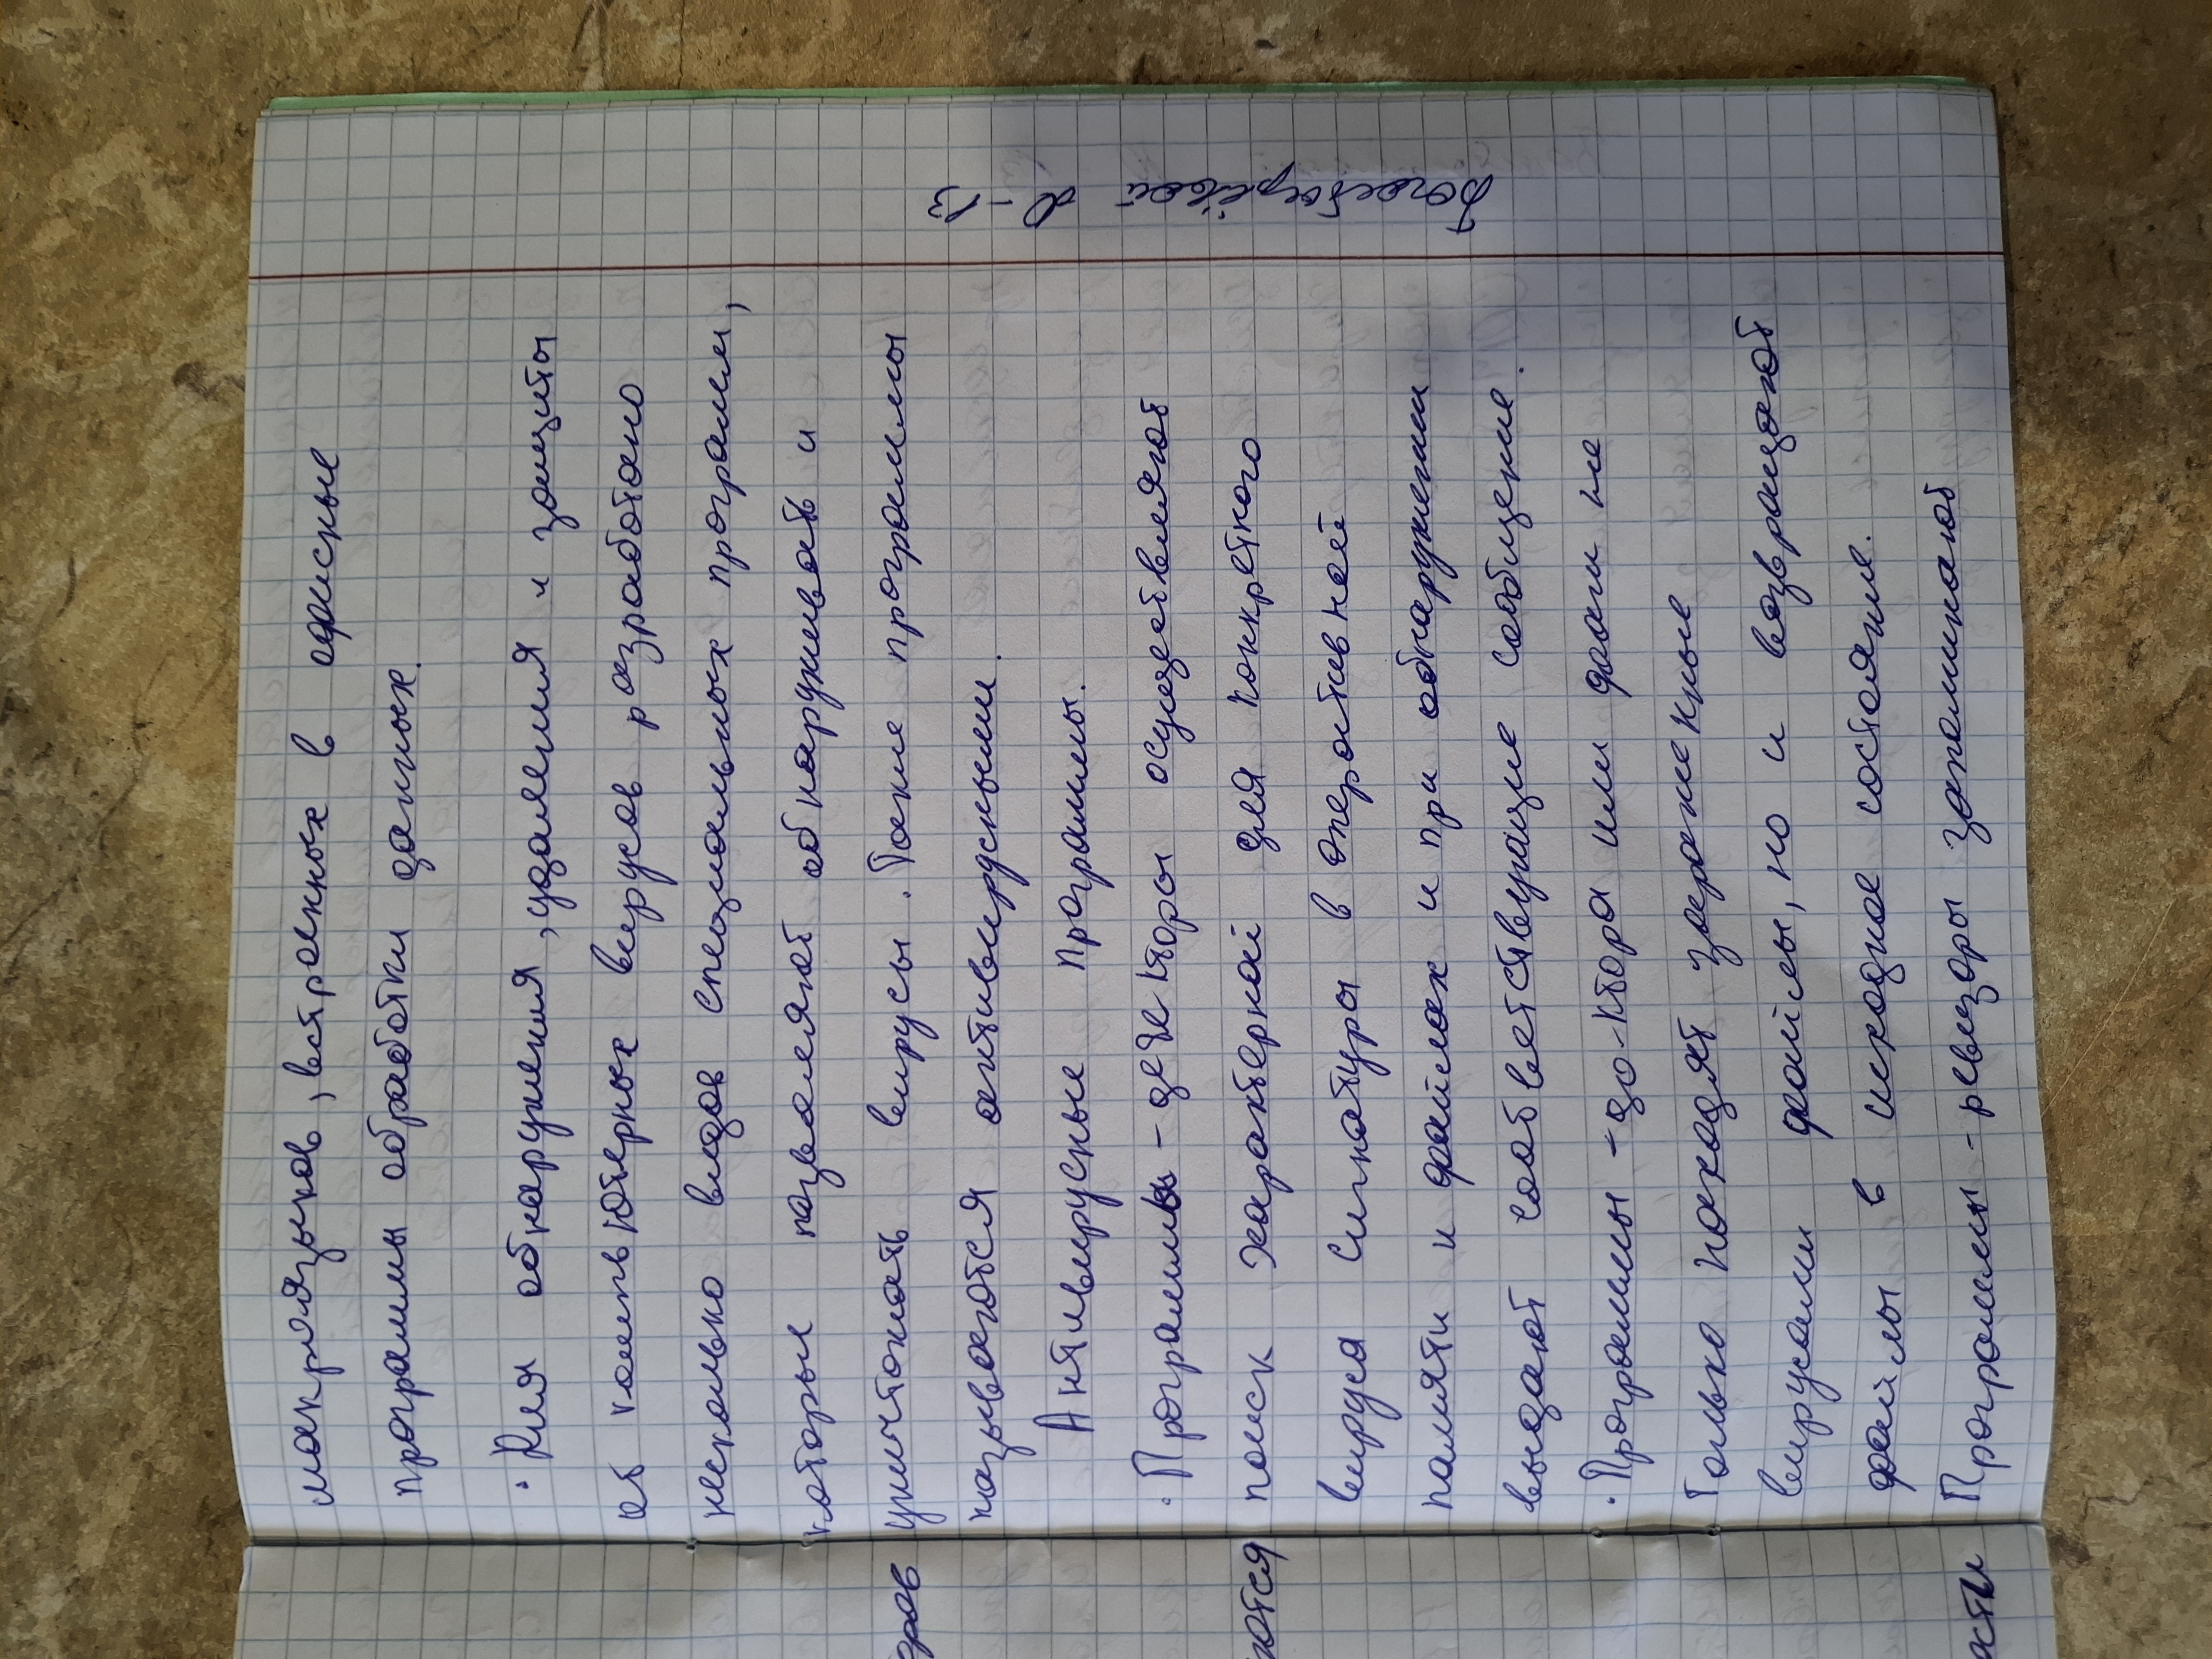 макроязыков, встроенных в офисные
программы обработки данных.
· Для обнаружения, удаления и защиты
от компьютерных вирусов разработано
несколько видов специальных программ,
которые позволяют обнаруживать и
уничтожать вирусы. Такие программы
называются антивирусными.
Антивирусные программы.
· Программы-детекторы осуществляют
поиск характерной для конкретного
вируса сигнатуры в оперативной
памяти и файлах и при обнаружении
выдают соответствующие сообщение.
· Программы-доктора или фаги не
только находят зараженные
вирусами файлы, но и возвращают
файлы в исходное состояние.
Программы-ревизоры запоминают